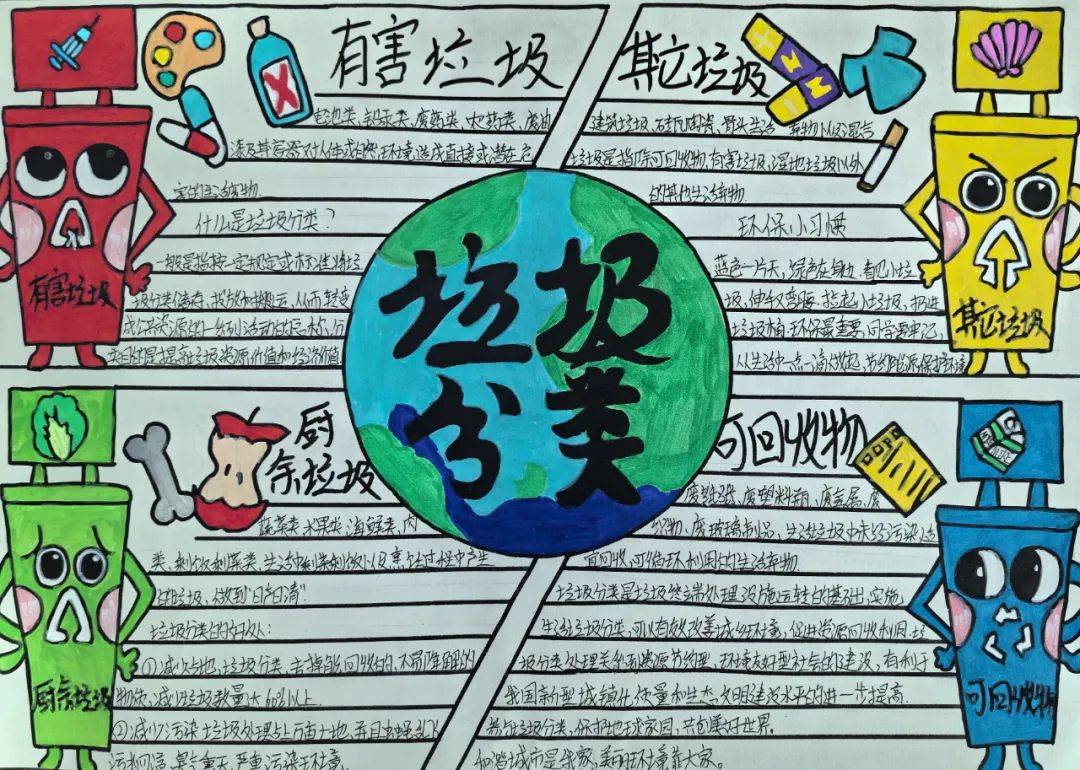 有害垃圾
对人体或自然环境造成直接或潜在危
害的
什么是垃圾分类?
一般是指按一定规定或标准将垃
圾分类储存、投放和搬运,从而转变
成公共资源的一系列活动的总称,分
类目的是提高垃圾资源价值和经济价值
有害垃圾
其它垃圾
建筑垃圾、砖瓦陶瓷、
垃圾是指除可回收物、有害垃圾、湿地垃圾以外
的其他生活弃物
环保小习惯
蓝色一片天,绿色在身边,看见小垃
圾,伸手弯腰拾起小垃圾,扔进
垃圾桶,环保最重要,同学要牢记,
从生活中一点一滴做起,节约能源保护环境
其它垃圾
垃圾
分类
厨
余垃圾
蔬菜类、水果类、海鲜类、肉
类、剩饭剩菜类,生活中剩菜剩饭以及烹饪过程中产生
的垃圾,做到"日产日清"
垃圾分类的好处:
①减少占地,垃圾分类,去掉能回收的、不易降解的
物质,减少垃圾数量达60%以上
②减少污染,垃圾处理占上万亩土地,并且虫蝇乱飞
污水四溢,臭气熏天,严重污染环境。
厨余垃圾
可回收物
废纸张、废塑料瓶、废金属、废
织物、废玻璃制品,生活垃圾中未经污染适
宜回收,可循环利用的生活弃物
垃圾分类是垃圾终端处理设施运转的基础,实施
生活垃圾分类,可以有效改善城乡环境,促进资源回收利用,垃
圾分类处理关系到资源节约型、环境友好型社会的建设,有利于
我国新型城镇化质量和生态文明建设水平的进一步提高
垃圾分类,保护地球家园,共创美好世界。
和谐城市是我家,美丽环境靠大家。
可回收物